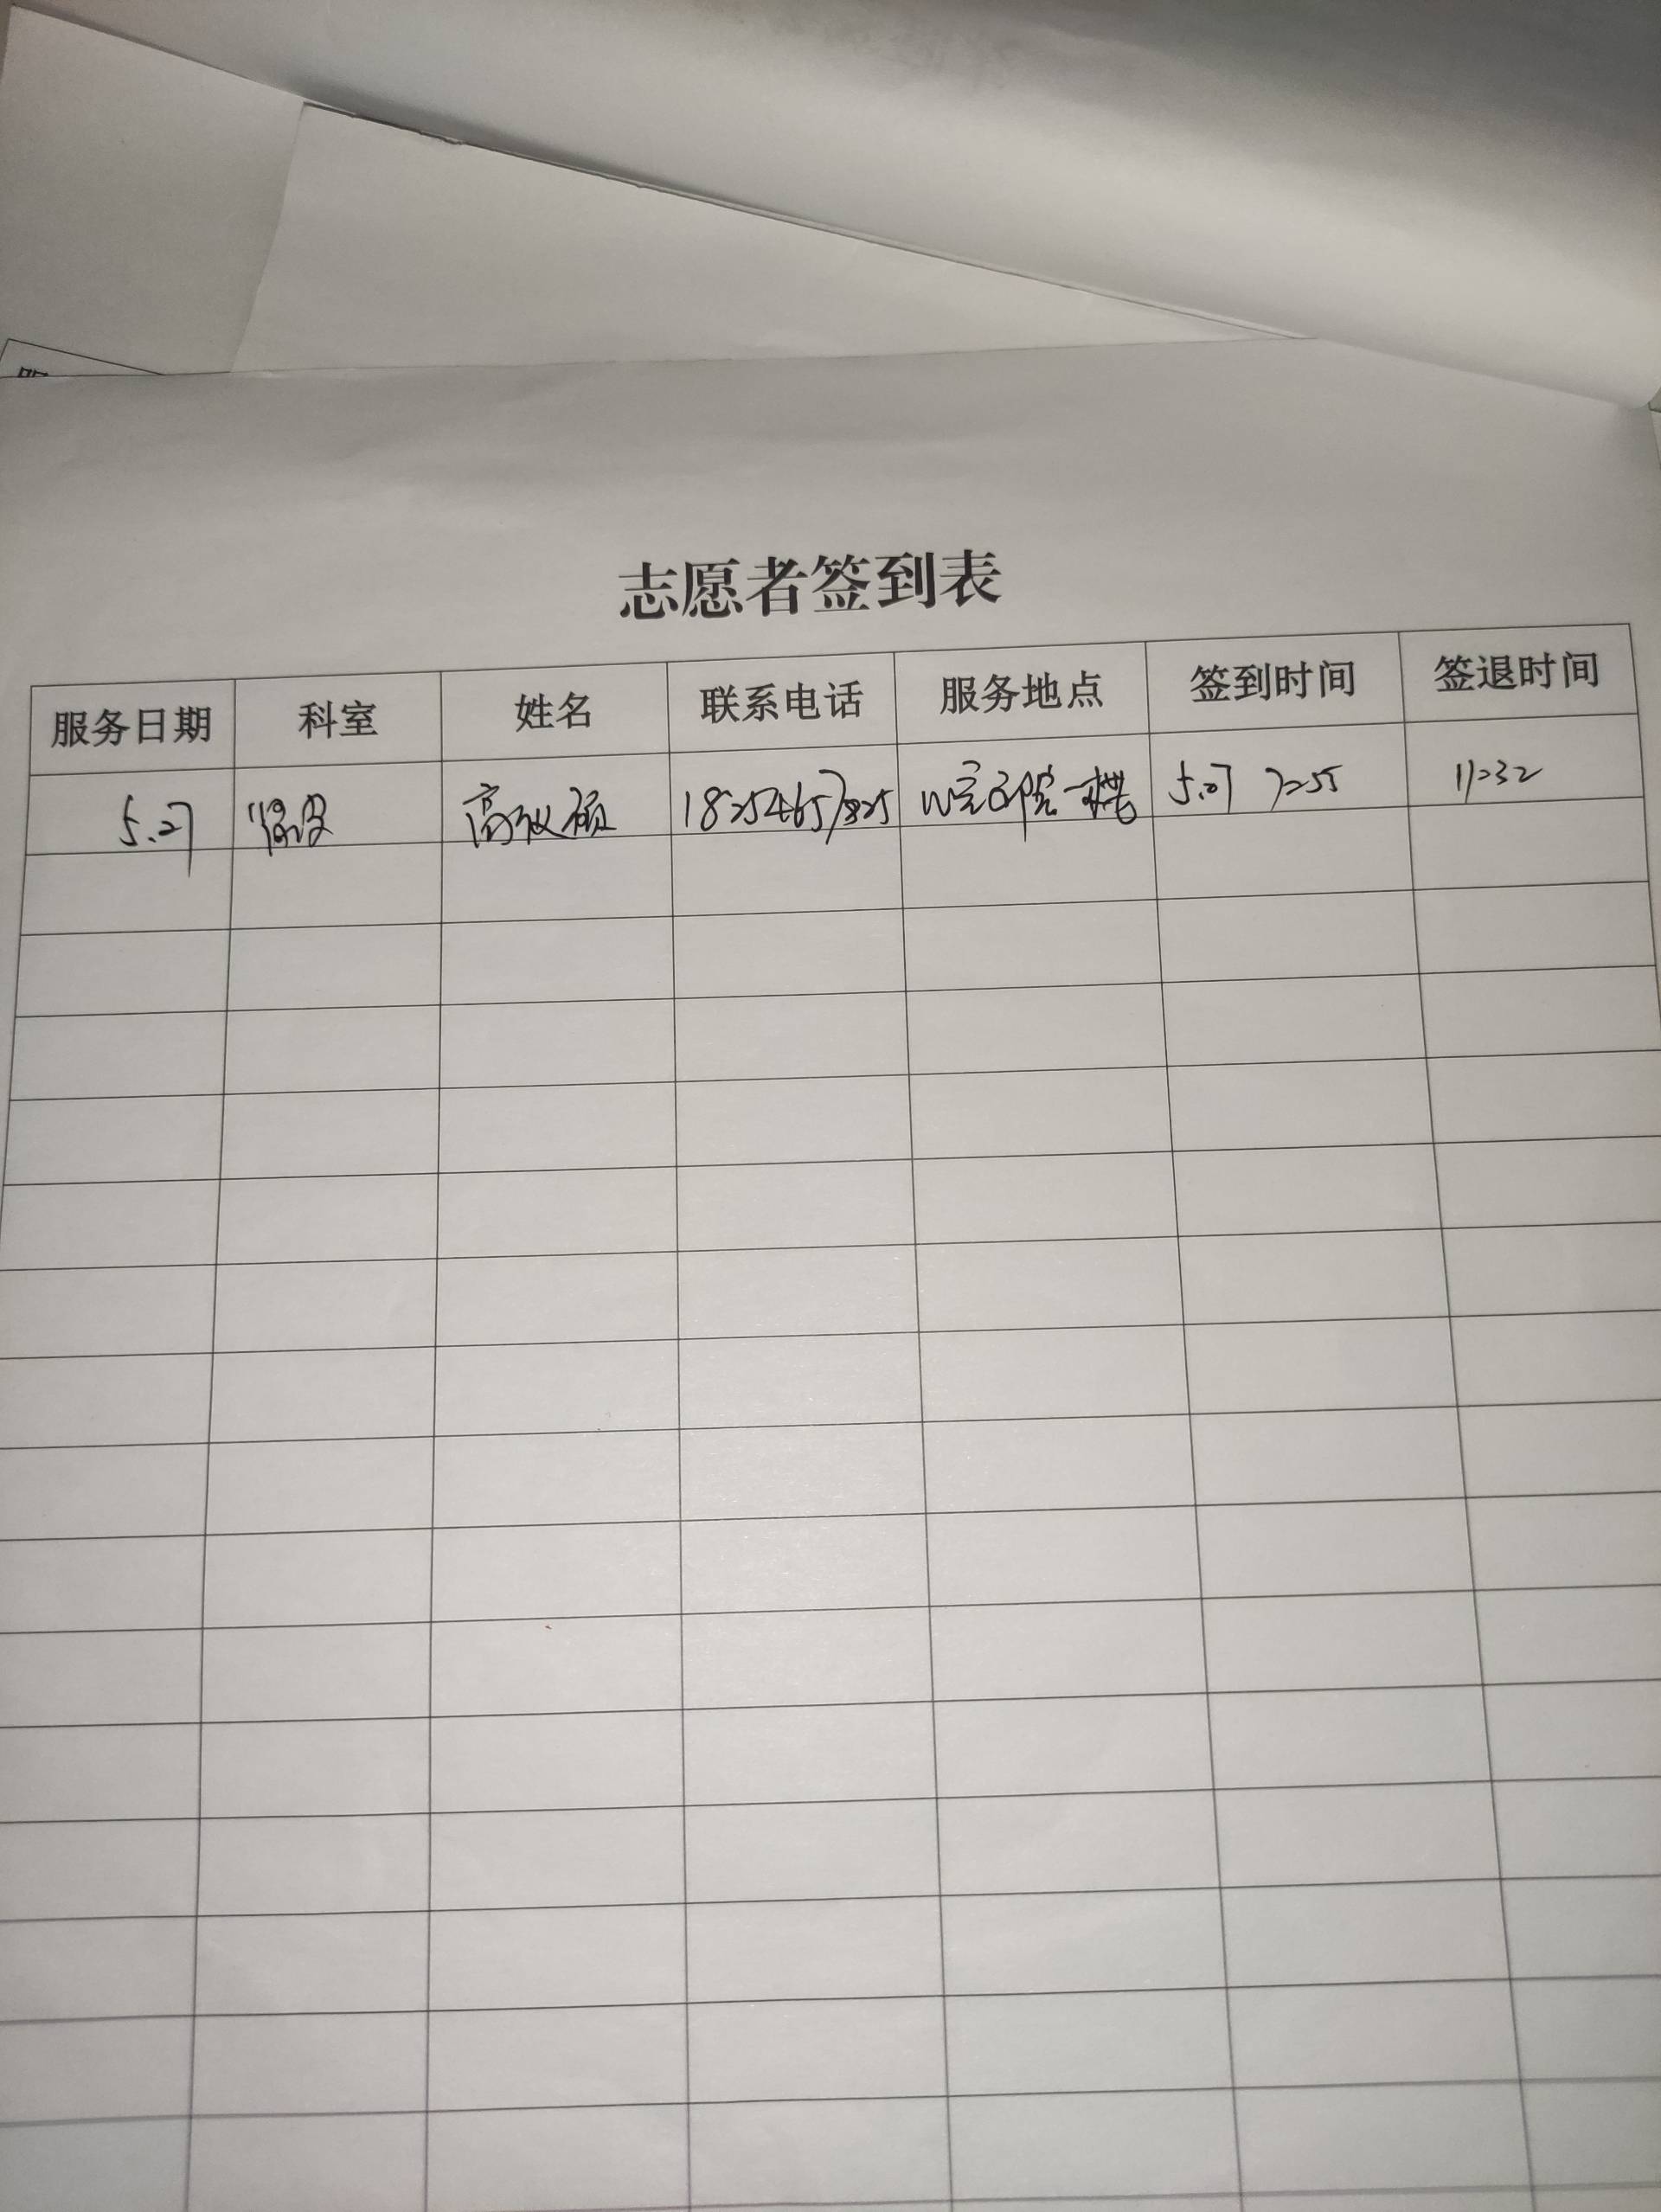 志愿者签到表
服务日期 科室 姓名 联系电话 服务地点 签到时间 签退时间
5.27 高 18254657825 院一楼 5.27 7:55 11:32